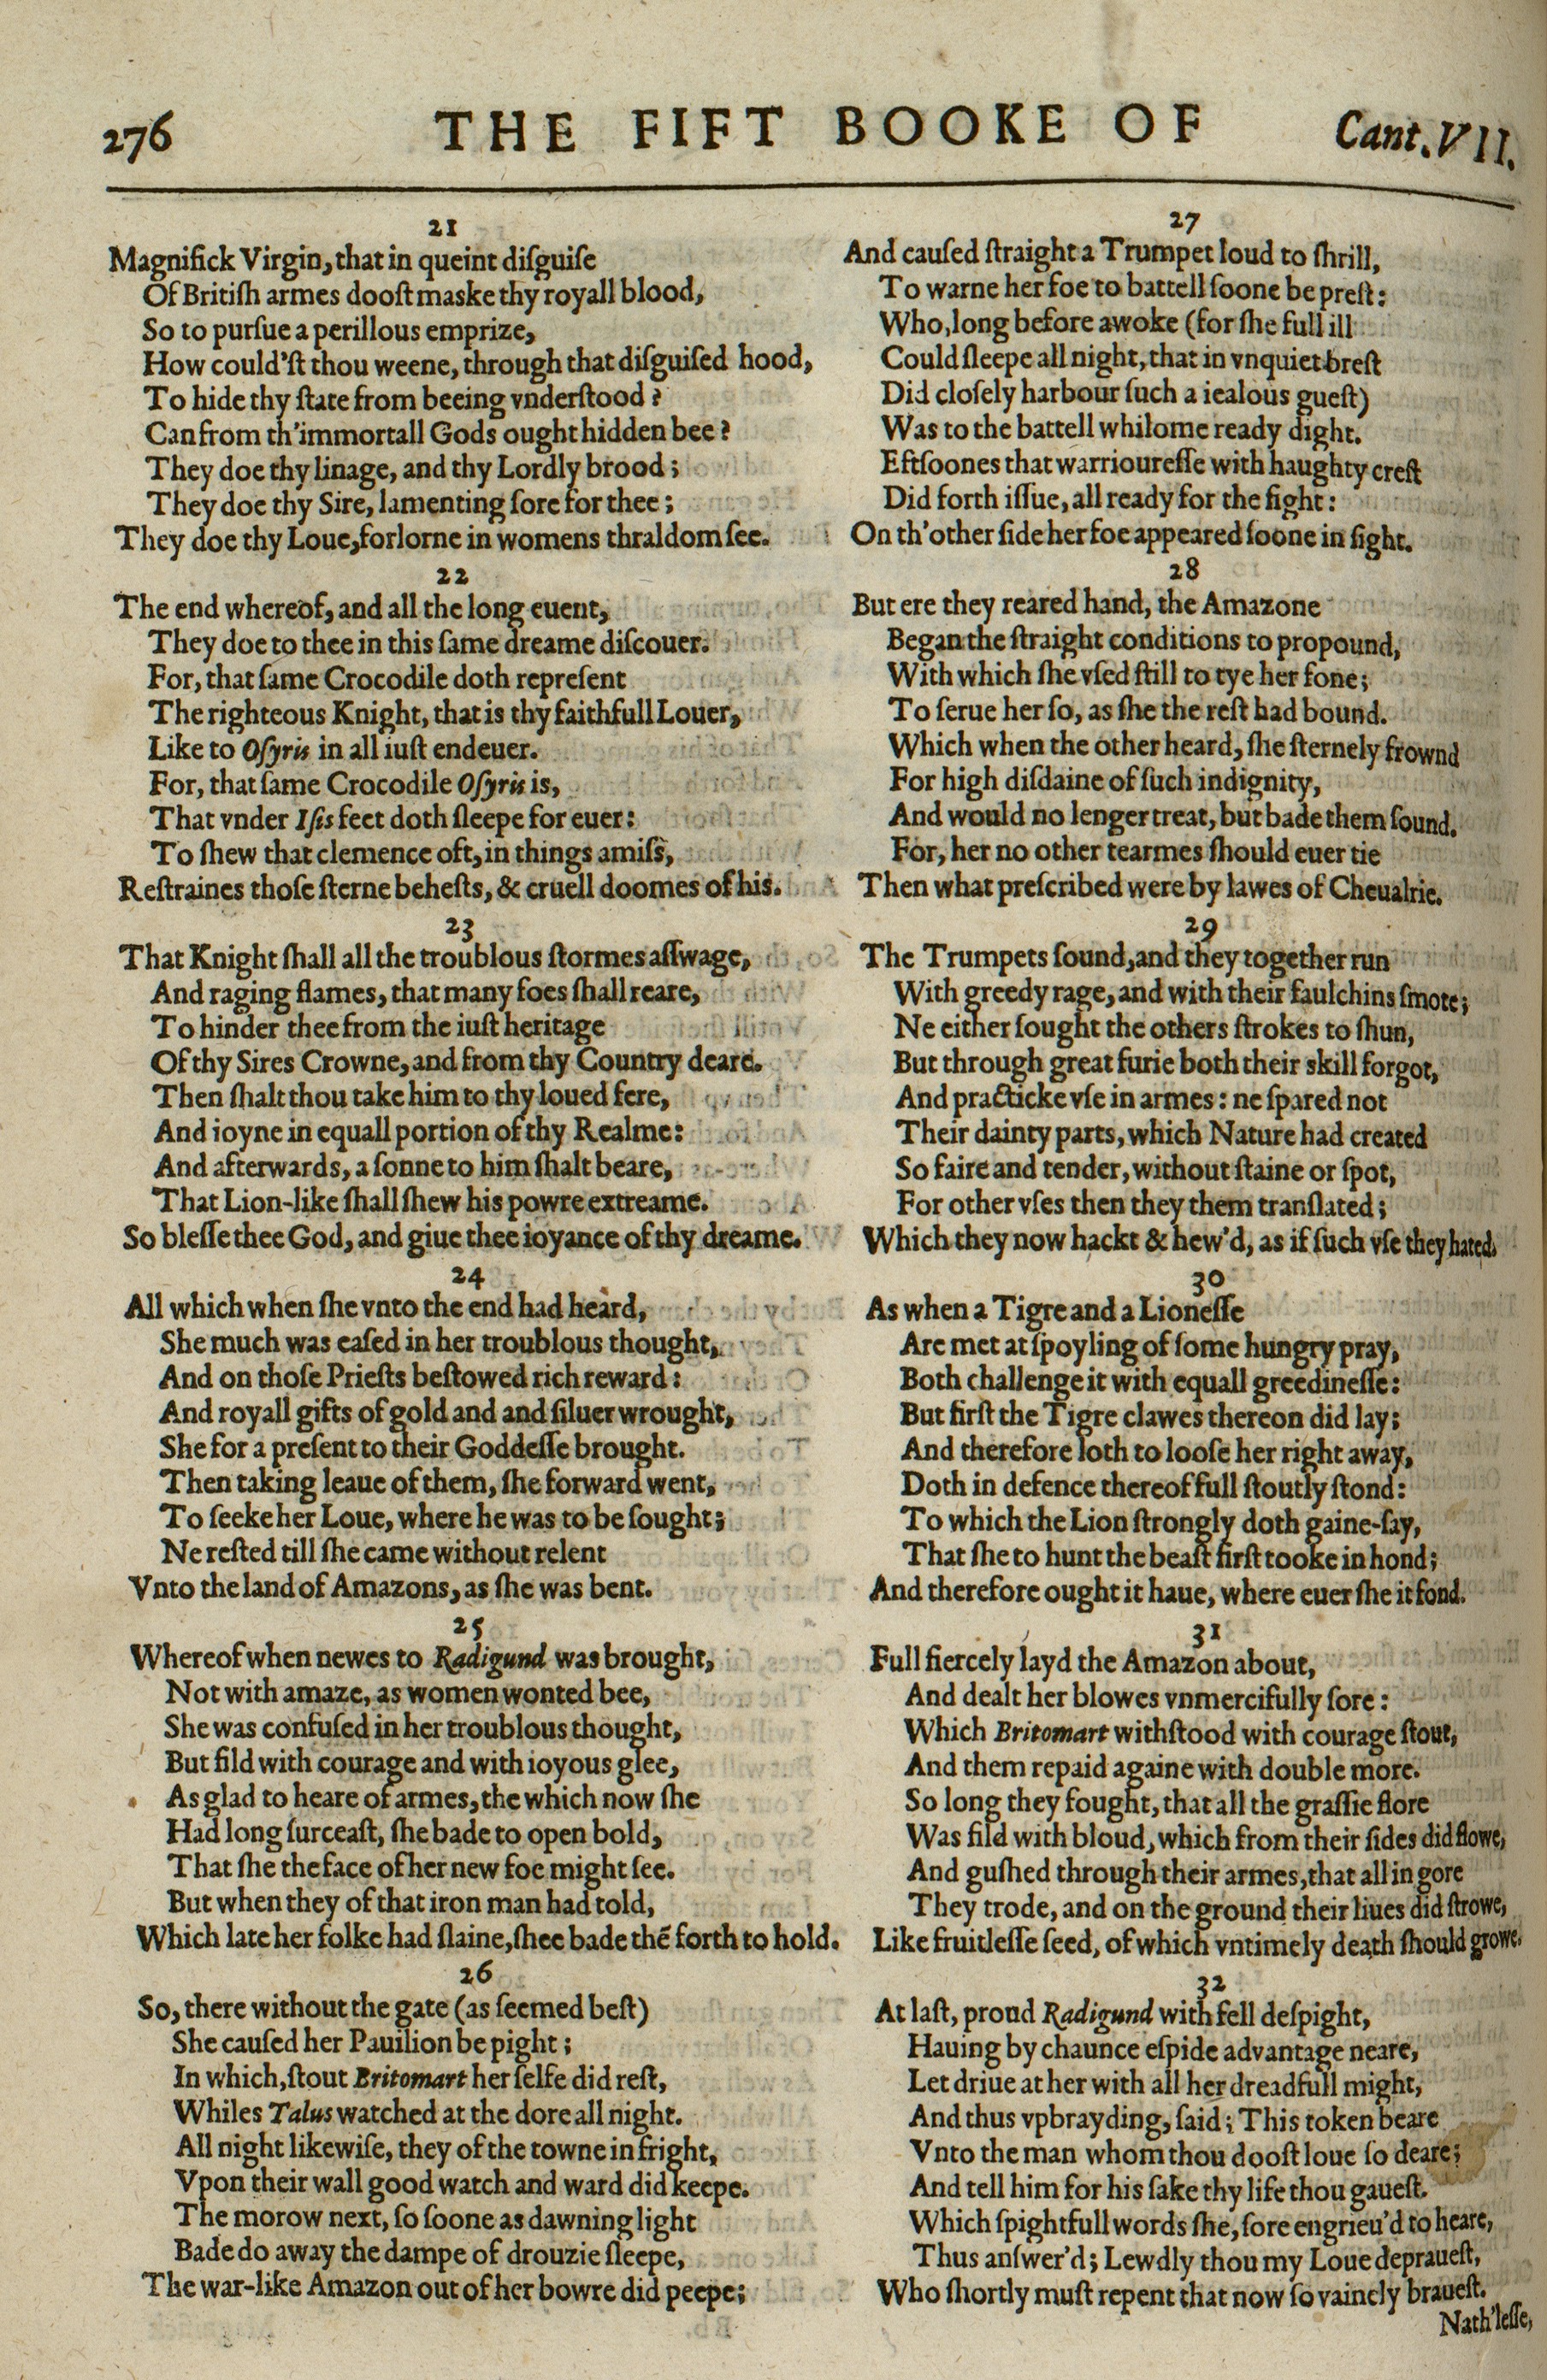 276 THE FIFT BOOKE OF Cant. VII.
21
Magnifick Virgin, that in queint diſguiſe
Of Britiſh armes dooſt maske thy royall blood,
So to purſue a perillous emprize,
How could'ſt thou weene, through that diſguiſed hood,
To hide thy ſtate from beeing vnderſtood?
Can from th'immortall Gods ought hidden bee?
They doe thy linage, and thy Lordly brood;
They doe thy Sire, lamenting ſore for thee;
They doe thy Loue, forlorne in womens thraldom ſee.
22
The end whereof, and all the long euent,
They doe to thee in this ſame dreame diſcouer.
For, that ſame Crocodile doth repreſent
The righteous Knight, that is thy faithfull Louer,
Like to Oſyris in all iuſt endeuer.
For, that ſame Crocodile Oſyris is,
That vnder Iſis feet doth ſleepe for euer:
To ſhew that clemence oft, in things amiſs,
Reſtraines thoſe ſterne beheſts, & cruell doomes of his.
23
That Knight ſhall all the troublous ſtormes aſſwage,
And raging flames, that many foes ſhall reare,
To hinder thee from the iuſt heritage
Of thy Sires Crowne, and from thy Country deare.
Then ſhalt thou take him to thy loued fere,
And ioyne in equall portion of thy Realme:
And afterwards, a ſonne to him ſhalt beare,
That Lion-like ſhall ſhew his powre extreame.
So bleſſe thee God, and giue thee ioyance of thy dreame.
24
All which when ſhe vnto the end had heard,
She much was eaſed in her troublous thought,
And on thoſe Prieſts beſtowed rich reward:
And royall gifts of gold and and ſiluer wrought,
She for a preſent to their Goddeſſe brought.
Then taking leaue of them, ſhe forward went,
To ſeeke her Loue, where he was to be ſought;
Ne reſted till ſhe came without relent
Vnto the land of Amazons, as ſhe was bent.
25
Whereof when newes to Radigund was brought,
Not with amaze, as women wonted bee,
She was confuſed in her troublous thought,
But fild with courage and with ioyous glee,
As glad to heare of armes, the which now ſhe
Had long ſurceaſt, ſhe bade to open bold,
That ſhe the face of her new foe might ſee.
But when they of that iron man had told,
Which late her folke had ſlaine, ſhee bade thē forth to hold.
26
So, there without the gate (as ſeemed beſt)
She cauſed her Pauilion be pight;
In which, ſtout Britomart her ſelfe did reſt,
Whiles Talus watched at the dore all night.
All night likewiſe, they of the towne in fright,
Vpon their wall good watch and ward did keepe.
The morow next, ſo ſoone as dawning light
Bade do away the dampe of drouzie ſleepe,
The war-like Amazon out of her bowre did peepe;
27
And cauſed ſtraight a Trumpet loud to ſhrill,
To warne her foe to battell ſoone be preſt:
Who, long before awoke (for ſhe full ill
Could ſleepe all night, that in vnquiet breſt
Did cloſely harbour ſuch a iealous gueſt)
Was to the battell whilome ready dight.
Eftſoones that warrioureſſe with haughty creſt
Did forth iſſue, all ready for the fight:
On th'other ſide her foe appeared ſoone in ſight.
28
But ere they reared hand, the Amazone
Began the ſtraight conditions to propound,
With which ſhe vſed ſtill to tye her fone;
To ſerue her ſo, as ſhe the reſt had bound.
Which when the other heard, ſhe ſternely frownd
For high diſdaine of ſuch indignity,
And would no lenger treat, but bade them ſound.
For, her no other tearmes ſhould euer tie
Then what preſcribed were by lawes of Cheualrie.
29
The Trumpets ſound, and they together run
With greedy rage, and with their faulchins ſmote;
Ne either ſought the others ſtrokes to ſhun,
But through great furie both their skill forgot,
And practicke vſe in armes: ne ſpared not
Their dainty parts, which Nature had created
So faire and tender, without ſtaine or ſpot,
For other vſes then they them tranſlated;
Which they now hackt & hew'd, as if ſuch vſe they hated.
30
As when a Tigre and a Lioneſſe
Are met at ſpoyling of ſome hungry pray,
Both challenge it with equall greedineſſe:
But firſt the Tigre clawes thereon did lay;
And therefore loth to looſe her right away,
Doth in defence thereof full ſtoutly ſtond:
To which the Lion ſtrongly doth gaine-ſay,
That ſhe to hunt the beaſt firſt tooke in hond;
And therefore ought it haue, where euer ſhe it fond.
31
Full fiercely layd the Amazon about,
And dealt her blowes vnmercifully ſore:
Which Britomart withſtood with courage ſtout,
And them repaid againe with double more.
So long they fought, that all the graſſie flore
Was fild with bloud, which from their ſides did flowe,
And guſhed through their armes, that all in gore
They trode, and on the ground their liues did ſtrowe,
Like fruitleſſe ſeed, of which vntimely death ſhould growe.
32
At laſt, proud Radigund with fell deſpight,
Hauing by chaunce eſpide advantage neare,
Let driue at her with all her dreadfull might,
And thus vpbrayding, ſaid; This token beare
Vnto the man whom thou dooſt loue ſo deare;
And tell him for his ſake thy life thou gaueſt.
Which ſpightfull words ſhe, ſore engrieu'd to heare,
Thus anſwer'd; Lewdly thou my Loue depraueſt,
Who ſhortly muſt repent that now ſo vainely braueſt.
Nath'leſſe,